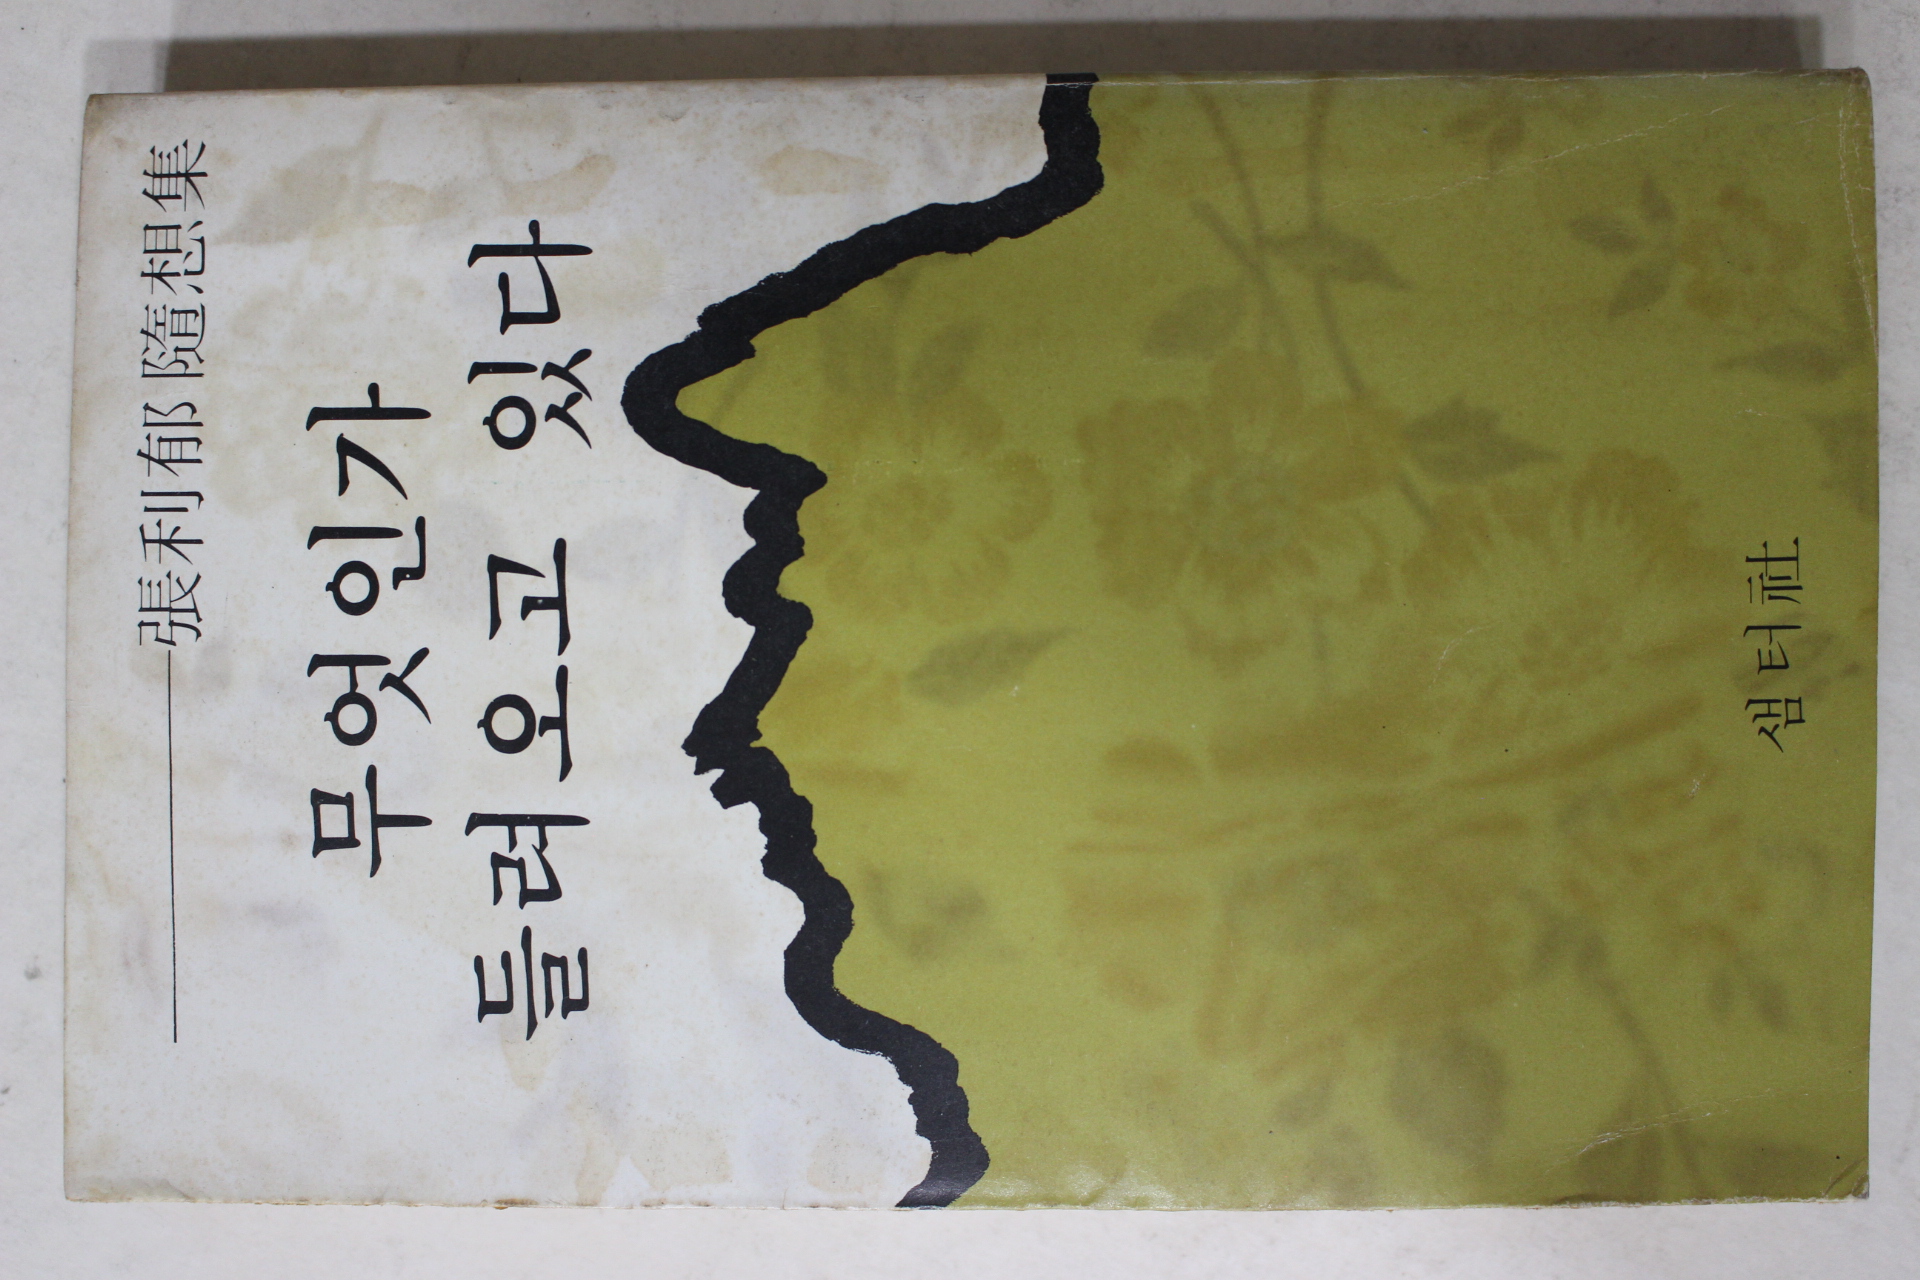 張利郁 隨想集
무엇인가
들려오고 있다
샘터社